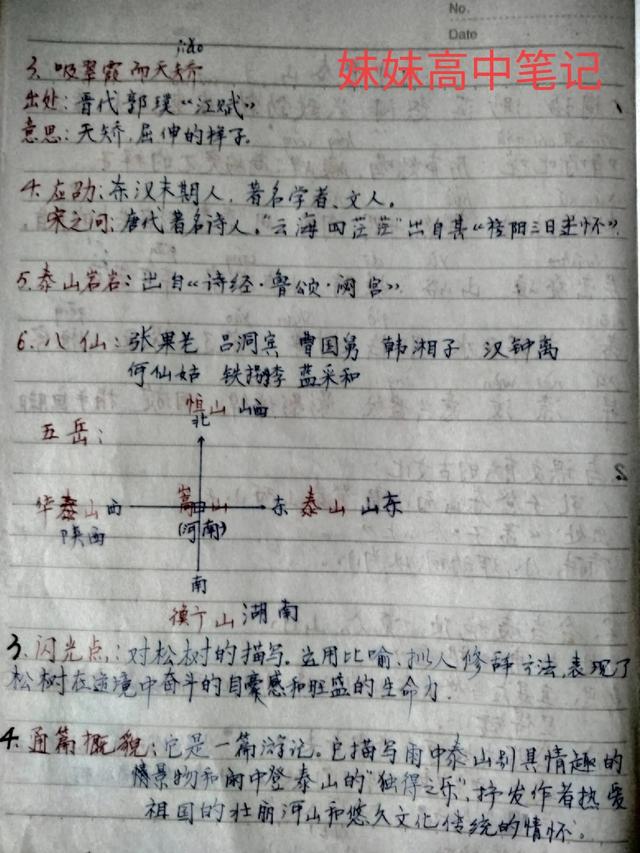 No.
Date
妹妹高中笔记
jiǎo
3. 吸翠霞而夭矫
出处：晋代郭璞“江赋”
意思：夭矫，屈伸的样子。
4. 应劭：东汉末期人，著名学者、文人。
宋之问：唐代著名诗人。“云海四茫茫”出自其“
5. 泰山岩岩：出自“诗经·鲁颂·閟宫”
6. 八仙：张果老 吕洞宾 曹国舅 韩湘子 汉钟离
何仙姑 铁拐李 蓝采和
恒山 山西
五岳： 北
华泰山 西 嵩中山 东 泰山 山东
陕西 (河南)
南
山 湖南
3. 闪光点：对松树的描写。运用比喻、拟人修辞方法，表现了
松树在逆境中奋斗的自豪感和旺盛的生命力.
4. 通篇概貌：它是一篇游记。它描写雨中泰山别具情趣的
景物和雨中登泰山的“独得之乐”，抒发作者热爱
祖国的壮丽河山和悠久文化传统的情怀。